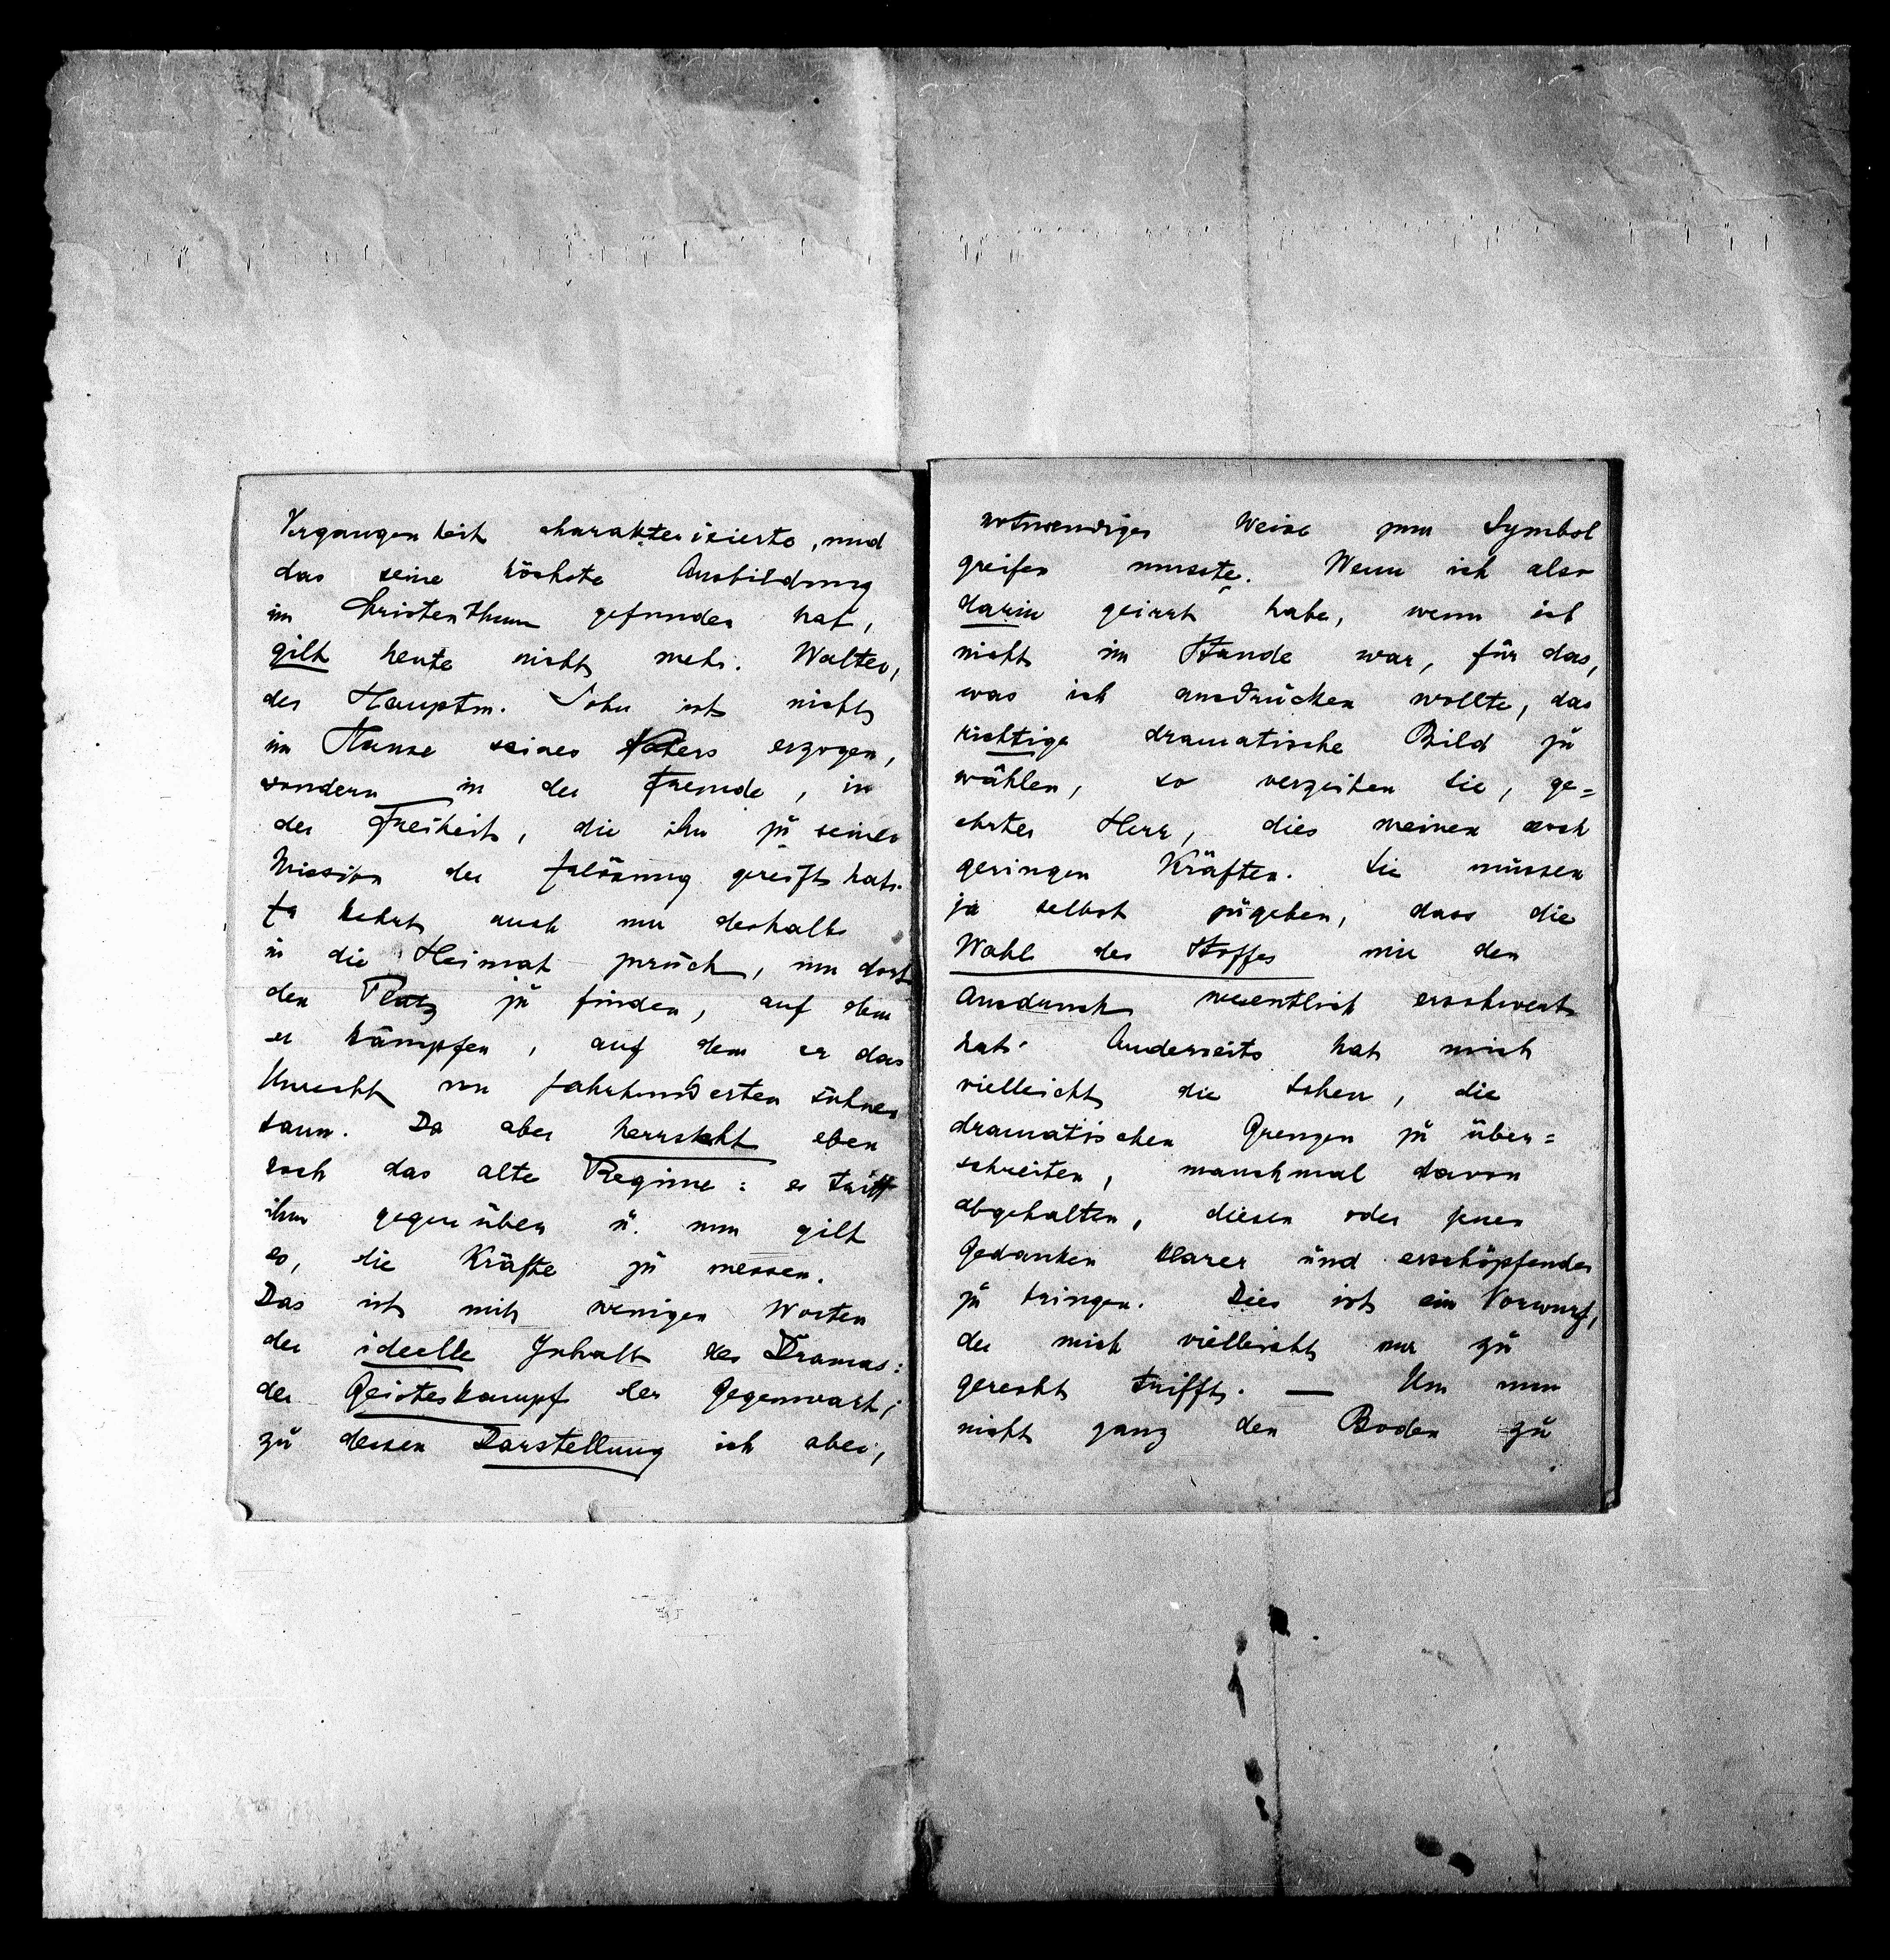 Vergangenheit charakterisierte, und
das seine höchste Ausbildung
im Christenthum gefunden hat,
gilt heute nicht mehr. Walter,
des Hauptm. Sohn ist nicht
im Hause seines Vaters erzogen,
sondern in der Fremde, in
der Freiheit, die ihn zu seiner
Mission der Erlösung gereift hat.
Er kehrt auch nur deshalb
in die Heimat zurück, um dort
den Platz zu finden, auf dem
er kämpfen, auf dem er das
Unrecht von Jahrhunderten sühnen
kann. Da aber herrscht eben
noch das alte Regime: es tritt
ihm gegenüber u. nun gilt
es, die Kräfte zu messen.
Das ist mit wenigen Worten
der ideelle Inhalt des Dramas:
der Geisteskampf der Gegenwart;
zu dessen Darstellung ich aber,
notwendiger Weise zum Symbol
greifen musste. Wenn ich also
darin geirrt habe, wenn ich
nicht im Stande war, für das,
was ich ausdrücken wollte, das
richtige dramatische Bild zu
wählen, so verzeihen Sie, ge=
ehrter Herr, dies meinen noch
geringen Kräften. Sie müssen
ja selbst zugeben, dass die
Wahl des Stoffes mir den
Ausdruck wesentlich erschwert
hat. Anderseits hat mich
vielleicht die Scheu, die
dramatischen Grenzen zu über=
schreiten, manchmal davon
abgehalten, diesen oder jenen
Gedanken klarer und erschöpfender
zu bringen. Dies ist ein Vorwurf,
der mich vielleicht nur zu
gerecht trifft. — Um nun
nicht ganz den Boden zu